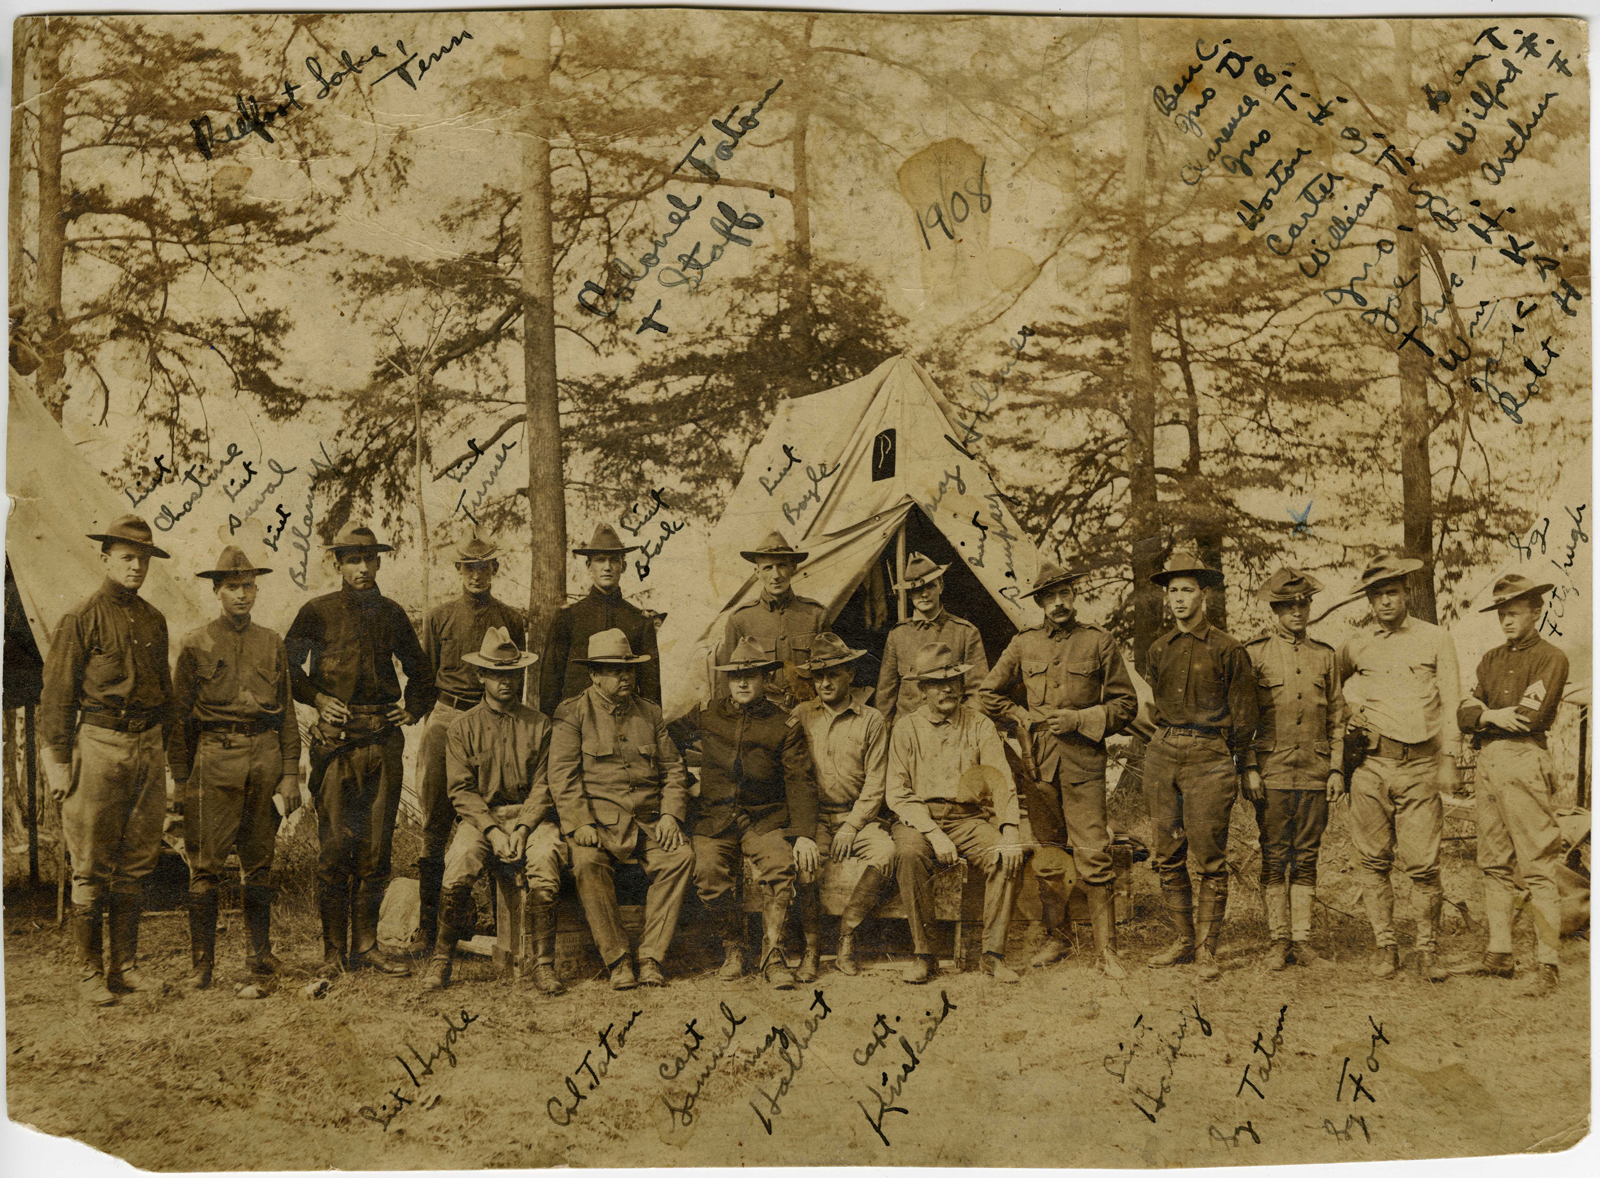 Reelfoot Lake,
Tenn
Colonel Tatom
+ Staff
1908
Ben C.
Jno D.
Clarence B.
Jno T.
Horton H.
Carter S.
William T.
Jno. S
Joe B
Sam T.
Wilford F.
Arthur F.
Jack K
Robt H D.
Liut
Chastine
Liut
Duval
Liut
Bellamy
Liut
Turner
Liut
Stark
Liut
Boyle
May Holmes
Liut
Dempsay
Sg
Fitzhugh
Liut Hyde
Col. Tatom
Capt
Samuel
May
Halbert
Capt.
Kinkaid
Liut
Sg Tatom
Sg Fox